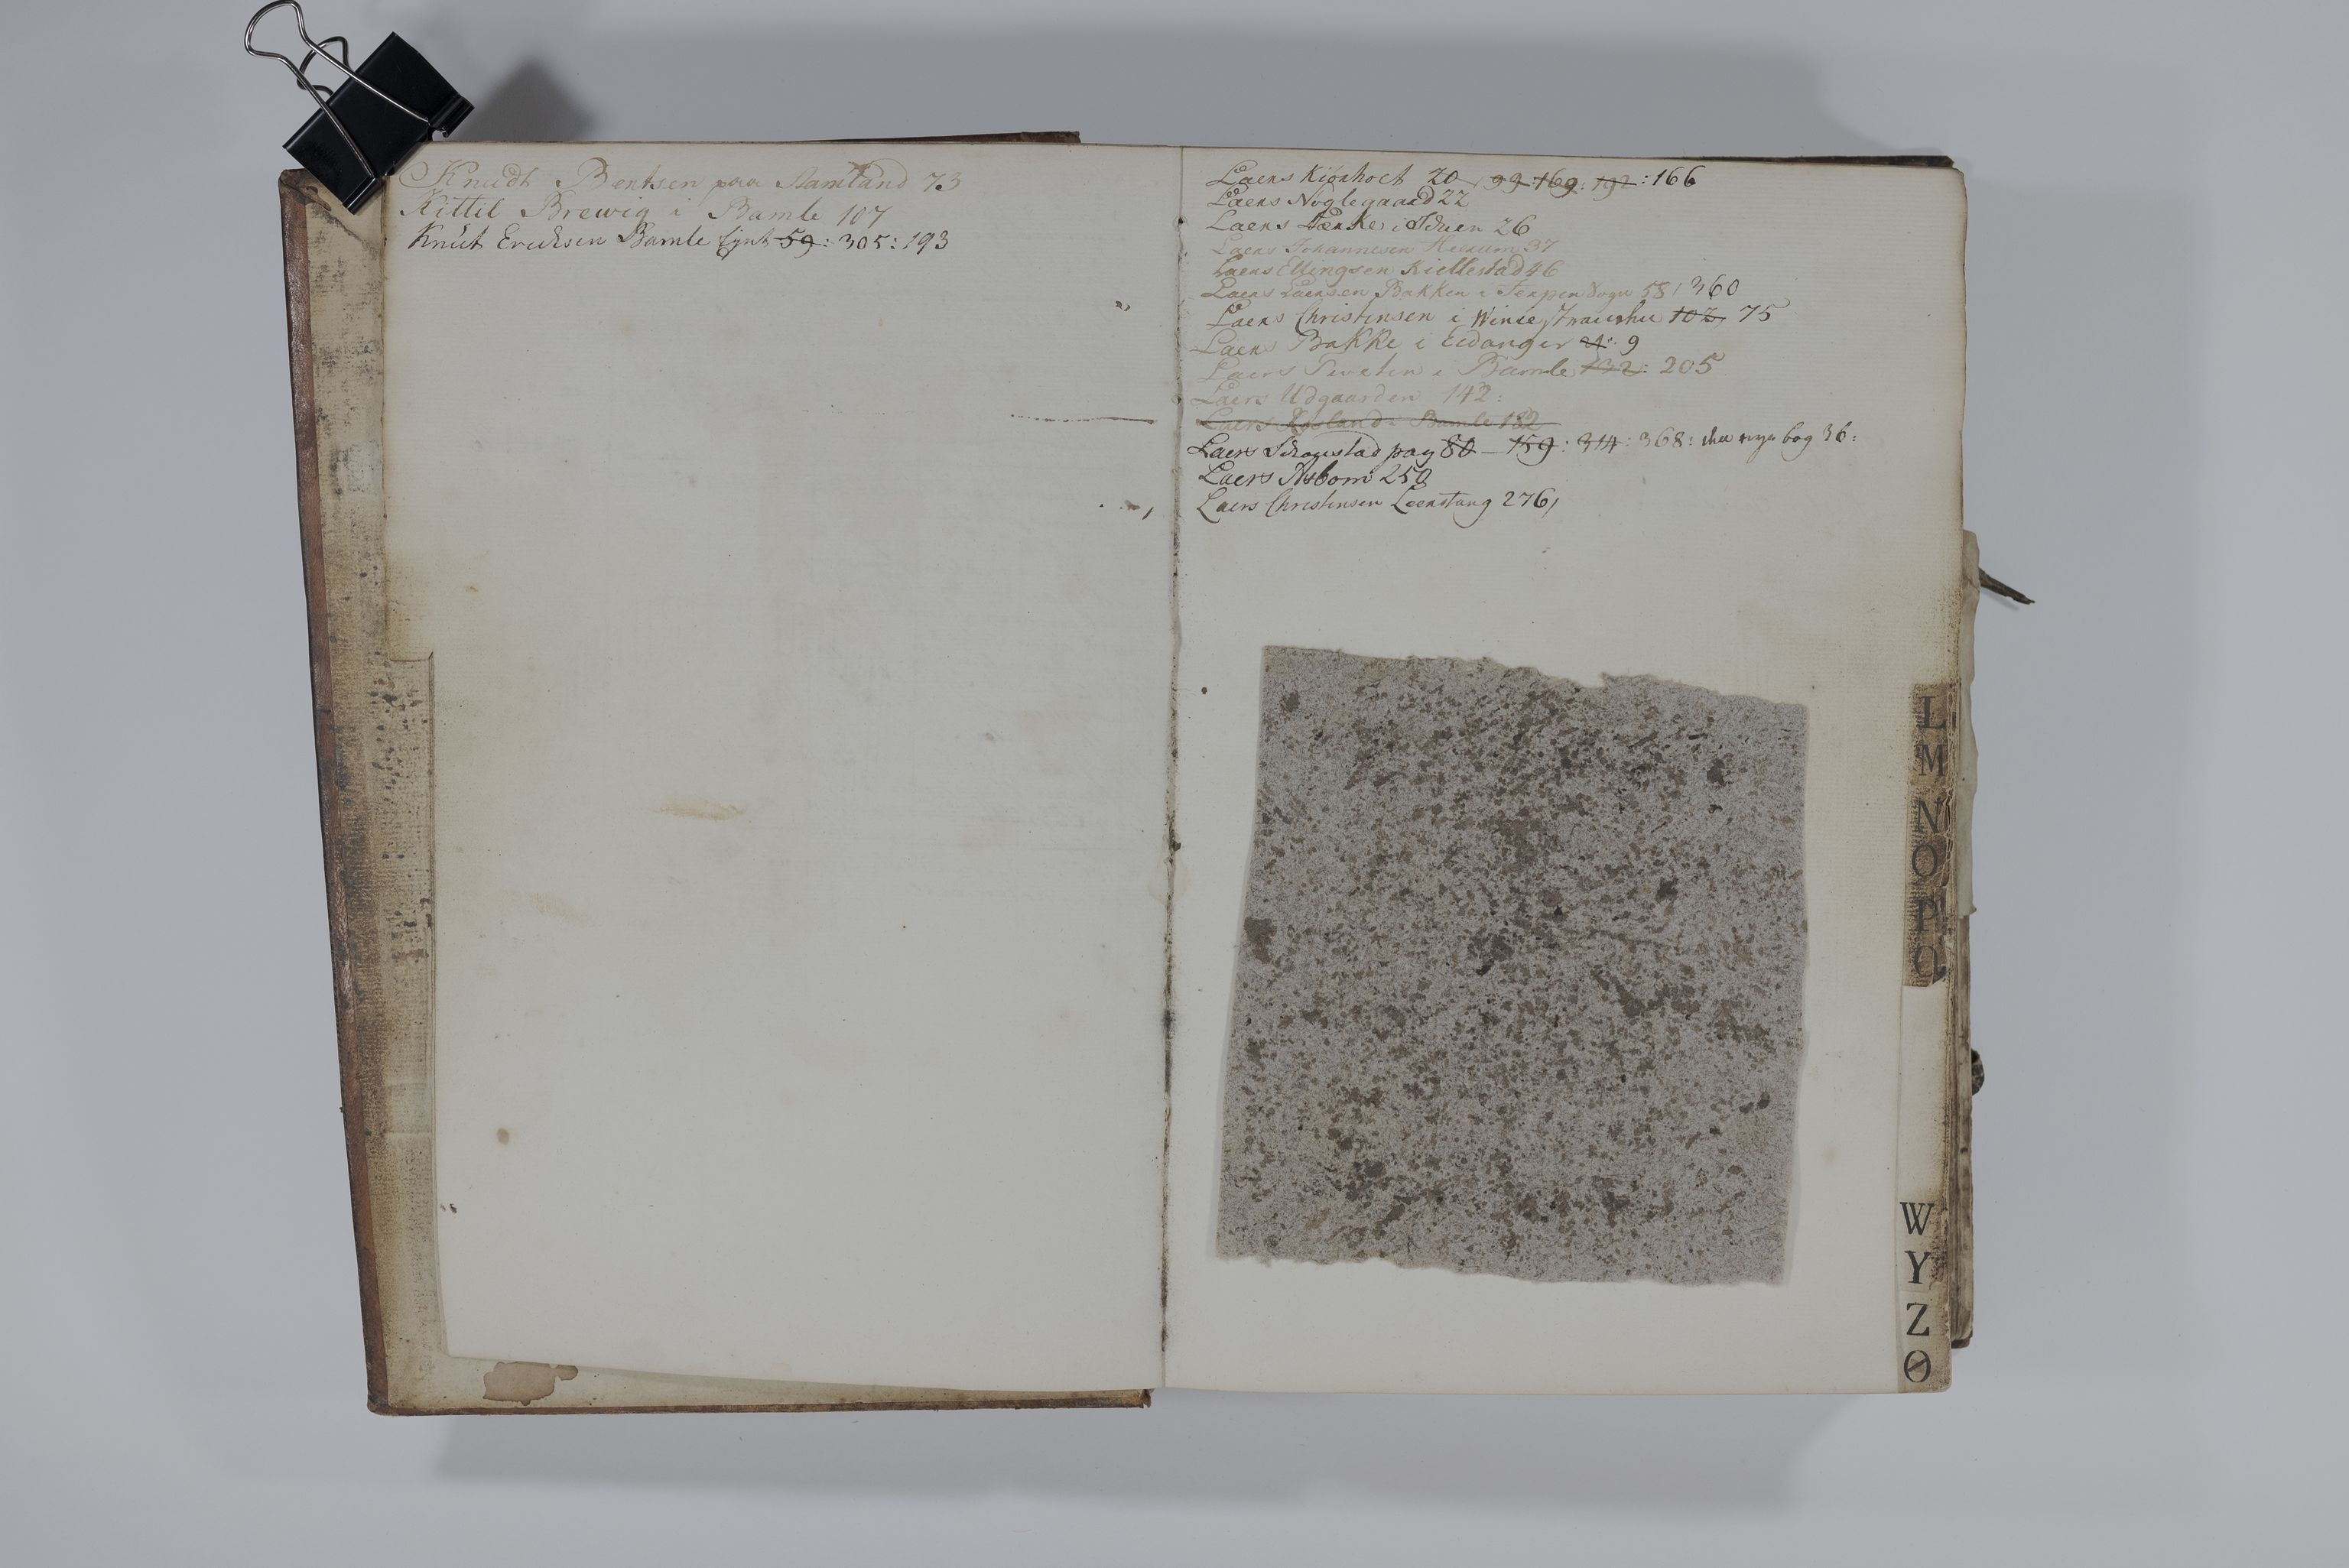 Knudt Bentsen paa Aamland 73
Kittil Brewig i Bamle 107
Knut Ericksen Bamle 59: 305: 193
Laers Kiönholt 20 99: 169: 192: 166
Laers Nöglegaard 22
Laers i 26
Laers Johannesen Heerum 37
Laers Ellingsen Kiellestad 46
Laers Laersen Bakken i 58, 360
Laers Christensen i Winie 102, 75
Laers Bakke i Eidanger 4: 9
Laers i Bamle 132: 205
Laers Udgaarden 142:
Laers i Bamle 182
Laers pag 80 - 159: 314: 368: nye bog 36:
Laers Asbom 250
Laers Christensen Leerstang 276,
L
M
N
O
P
Q
W
Y
Z
Ø